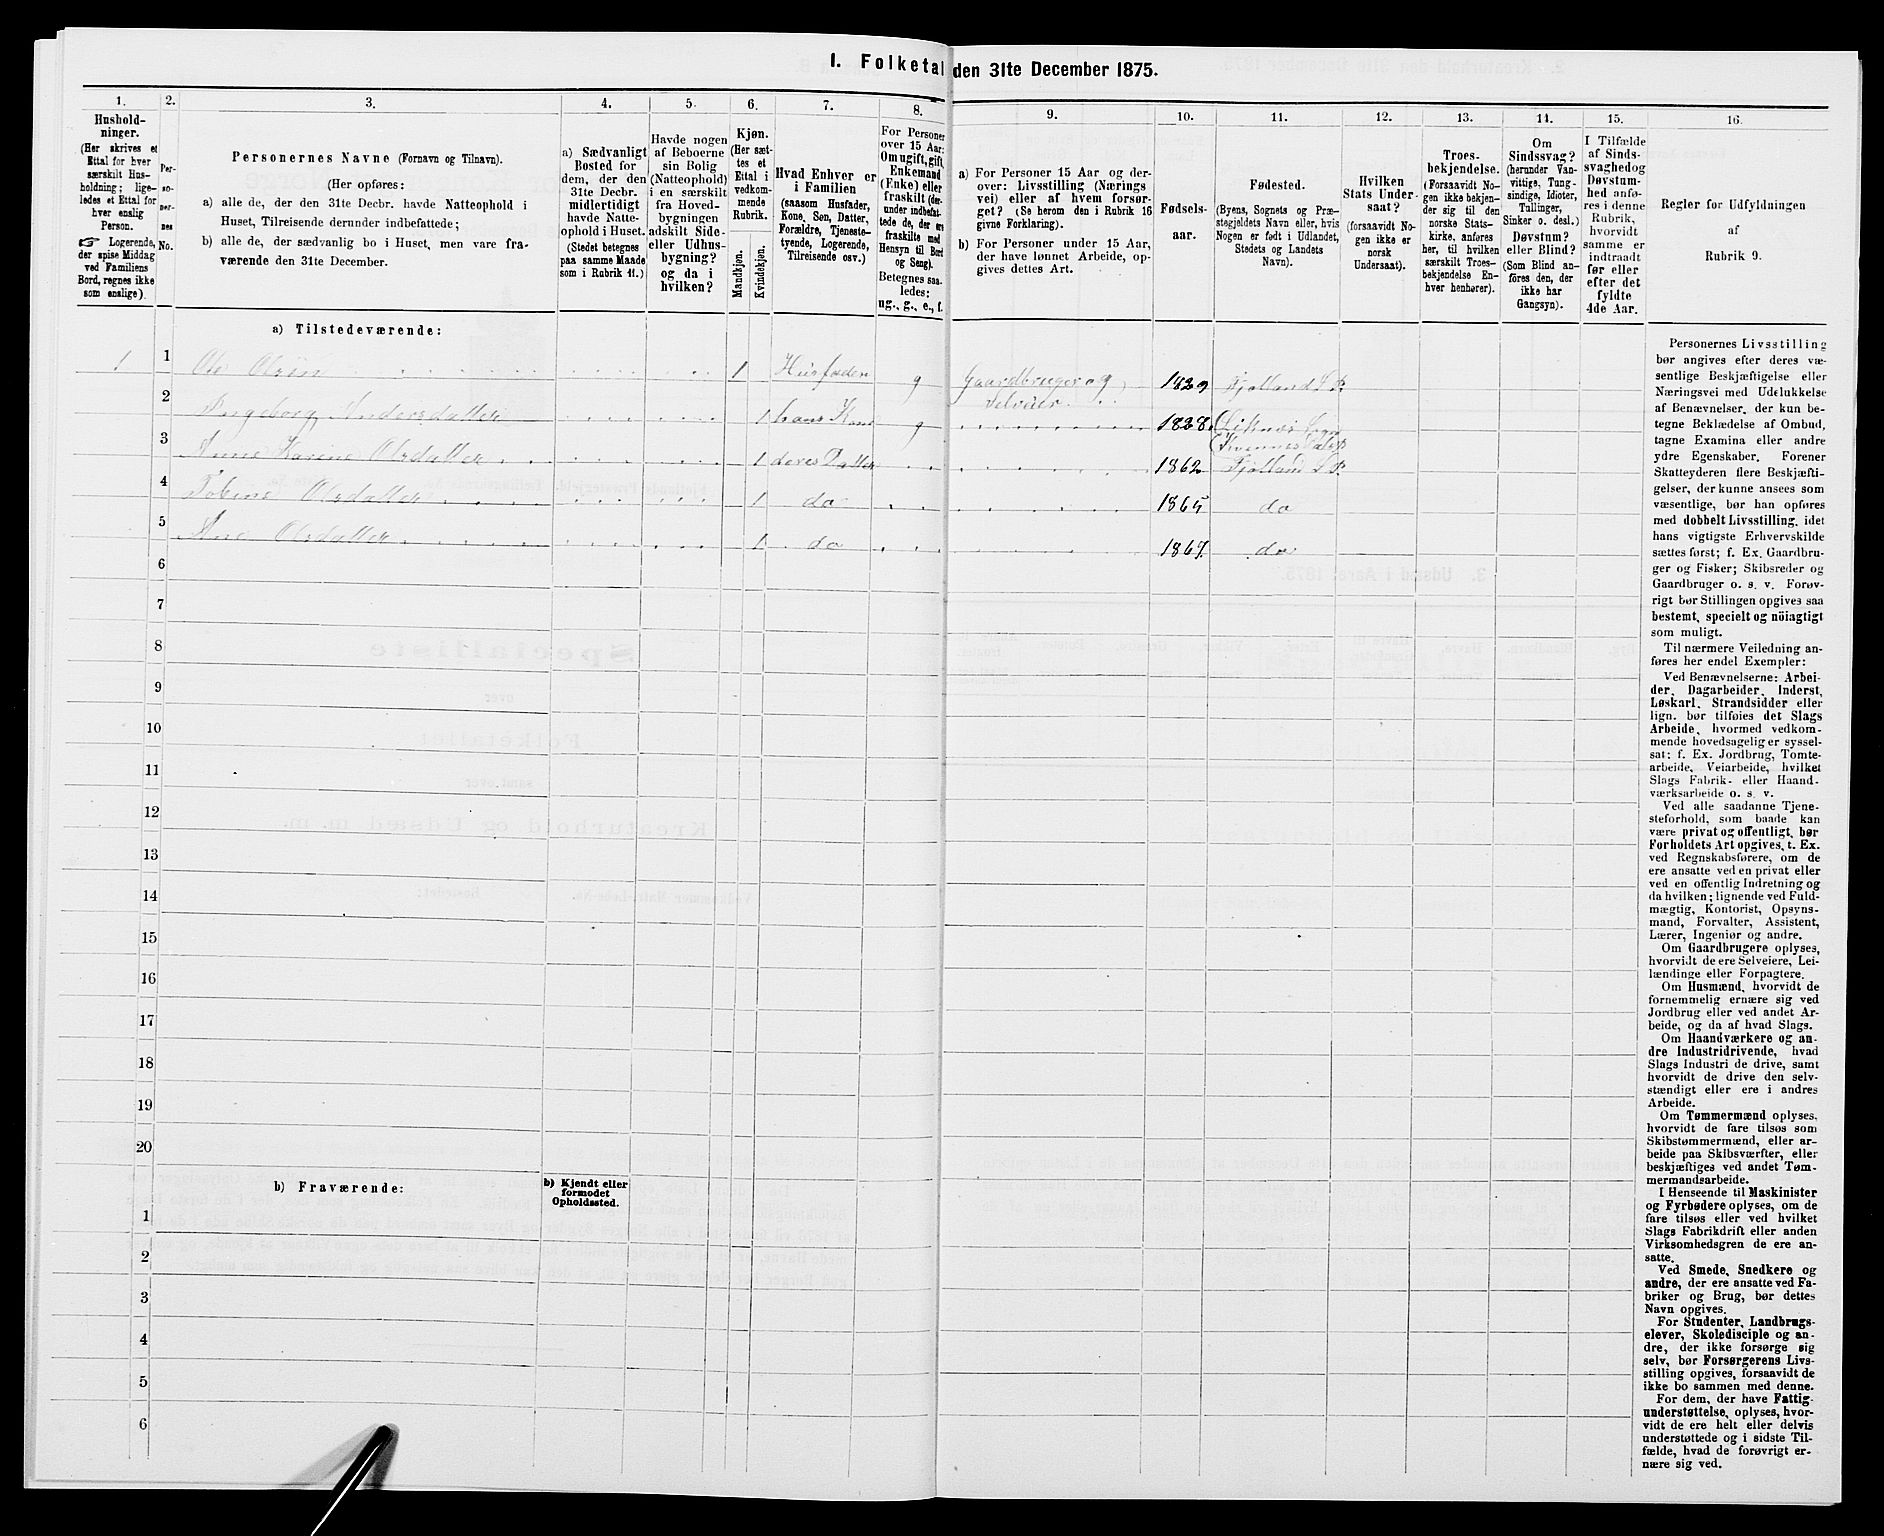 I. Folketal den 31te December 1875.
1.
Hushold-
ninger.
(Her skrives et
Ettal for hver
særskilt Hus-
holdning; lige-
ledes et Ettal for
hver enslig
Person.
☞ Logerende,
der spise Middag
ved Familiens
Bord, regnes ikke
som enslige).
2.
Per-
so-
ner-
nes
No.
3.
Personernes Navne (Fornavn og Tilnavn).
(Her opføres:
a) alle de, der den 31te Decbr. havde Natteophold i
Huset, Tilreisende derunder indbefattede;
b) alle de, der sædvanlig bo i Huset, men vare fra-
værende den 31te December.
4.
a) Sædvanligt
Bosted for
dem, der den
31te Decbr.
midlertidigt
havde Natte-
ophold i Huset.
(Stedet betegnes
paa samme Maade
som i Rubrik 11.)
5.
Havde nogen
af Beboerne
sin Bolig
(Natteophold)
i en særskilt
fra Hoved-
bygningen
adskilt Side-
eller Udhus-
bygning?
og da i
hvilken?
6.
Kjøn.
(Her sæt-
tes et
Ettal i
vedkom-
mende
Rubrik.
Mandkjøn.
Kvindekjøn.
7.
Hvad Enhver er
i Familien
(saasom Husfader,
Kone, Søn, Datter,
Forældre, Tjeneste-
tyende, Logerende,
Tilreisende osv.)
8.
For Personer
over 15 Aar:
Om ugift, gift
Enkemand
(Enke) eller
fraskilt (der-
under indbefat-
tede de, der ere
fraskilte med
Hensyn til Bord
og Seng).
Betegnes saa-
ledes:
ug., g., e., f.
9.
a) For Personer 15 Aar og der-
over: Livsstilling (Nærings
vei) eller af hvem forsør-
get? (Se herom den i Rubrik 16
givne Forklaring).
b) For Personer under 15 Aar,
der have lønnet Arbeide, op-
gives dettes Art.
10.
Fødsels-
aar.
11.
Fødested.
(Byens, Sognets og Præ-
stegjeldets Navn eller, hvis
Nogen er født i Udlandet,
Stedets og Landets
Navn).
12.
Hvilken
Stats Under-
saat?
(forsaavidt No-
gen ikke er
norsk
Undersaat).
13.
Troes-
bekjendelse.
(Forsaavidt No-
gen ikke bekjen-
der sig til den
norske Stats-
kirke, anføres
her, til hvilken
særskilt Troes-
bekjendelse En-
hver henhører).
14.
Om
Sindssvag?
(herunder Van-
vittige, Tung-
sindige, Idioter,
Tullinger,
Sinker o. desl.)
Døvstum?
eller Blind?
(Som Blind an-
føres den, der
ikke har
Gangsyn).
15.
I Tilfælde
af Sinds-
svaghed og
Døvstum-
hed anfø-
res i denne
Rubrik,
hvorvidt
samme er
indtraadt
før eller
efter det
fyldte
4de Aar.
16.
Regler for Udfyldningen
af
Rubrik 9.
a) Tilstedeværende:
1 1 Ole 1 Husfader g Gaardbruger og 1829 Fjotland S. P.
Selveier
2 Ingeborg Andersdatter 1 hans Kone g 1838 Liknes Sogn
Kvinnesdals P
3 Anne Karine Olsdatter 1 deres Datter 1862 Fjotland S. P.
4 Tobine Olsdatter 1 do 1865 do
5 Ane Olsdatter 1 do 1867 do
6
7
8
9
10
11
12
13
14
15
16
17
18
19
20
b) Fraværende:
b) Kjendt eller
formodet
Opholdssted.
1
2
3
4
5
6
Personernes Livsstilling
bør angives efter deres væ-
sentlige Beskjæftigelse eller
Næringsvei med Udelukkelse
af Benævnelser, der kun be-
tegne Beklædelse af Ombud,
tagne Examina eller andre
ydre Egenskaber. Forener
Skatteyderen flere Beskjæfti-
gelser, der kunne ansees som
væsentlige, bør han opføres
med dobbelt Livsstilling, idet
hans vigtigste Erhvervskilde
sættes først; f. Ex. Gaardbru-
ger og Fisker; Skibsreder og
Gaardbruger o. s. v. Forøv-
rigt bør Stillingen opgives saa
bestemt, specielt og nöiagtigt
som muligt.
Til nærmere Veiledning an-
føres her endel Exempler:
Ved Benævnelserne: Arbei-
der, Dagarbeider, Inderst,
Løskarl, Strandsidder eller
lign. bør tilføies det Slags
Arbeide, hvormed vedkom-
mende hovedsagelig er syssel-
sat; f. Ex. Jordbrug, Tomte-
arbeide, Veiarbeide, hvilket
Slags Fabrik- eller Haand-
værksarbeide o. s. v.
Ved alle saadanne Tjene-
steforhold, som baade kan
være privat og offentligt, bør
Forholdets Art opgives, t. Ex.
ved Regnskabsførere, om de
ere ansatte ved en privat eller
ved en offentlig Indretning og
da hvilken; lignende ved Fuld-
mægtig, Kontorist, Opsyns-
mand, Forvalter, Assistent,
Lærer, Ingeniør og andre.
Om Gaardbrugere oplyses,
hvorvidt de ere Selveiere, Lei-
lændinge eller Forpagtere.
Om Husmænd, hvorvidt de
fornemmelig ernære sig ved
Jordbrug eller ved andet Ar-
beide, og da af hvad Slags.
Om Haandværkere og an-
dre Industridrivende, hvad
Slags Industri de drive, samt
hvorvidt de drive den selv-
stændigt eller ere i andres
Arbeide.
Om Tømmermænd oplyses,
hvorvidt de fare tilsøs som
Skibstømmermænd, eller ar-
beide paa Skibsværfter, eller
beskjæftiges ved andet Tøm-
mermandsarbeide.
I Henseende til Maskinister
og Fyrbødere oplyses, om de
fare tilsøs eller ved hvilket
Slags Fabrikdrift eller anden
Virksomhedsgren de ere an-
satte.
Ved Smede, Snedkere og
andre, der ere ansatte ved Fa-
briker og Brug, bør dettes
Navn opgives.
For Studenter, Landbrugs-
elever, Skoledisciple og an-
dre, der ikke forsørge sig
selv, bør Forsørgerens Livs-
stilling opgives, forsaavidt de
ikke bo sammen med denne.
For dem, der have Fattig-
understøttelse, oplyses, hvor-
vidt de ere helt eller delvis
understøttede og i sidste Til-
fælde, hvad de forøvrigt er-
nære sig ved.